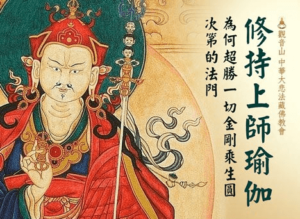 觀音山 中華大悲法藏佛教會
修持上師瑜伽
為何超勝一切金剛乘生圓
次第的法門